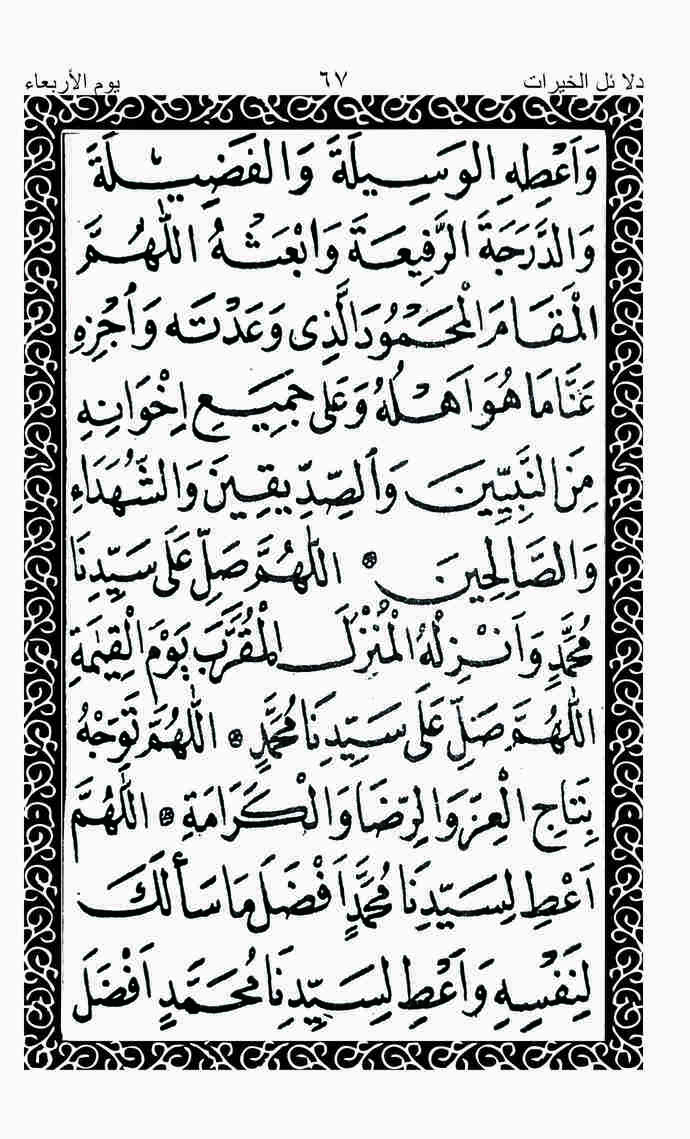 دلائل الخيرات ٦٧ يوم الأربعاء
وَاَعْطِهِ الْوَسِيلَةَ وَالْفَضِيلَةَ
وَالدَّرَجَةَ الرَّفِيعَةَ وَابْعَثْهُ اللّٰهُمَّ
الْمَقَامَ الْمَحْمُودَ الَّذِى وَعَدْتَه وَاُجْزِهِ
عَنَّا مَا هُوَ اَهْلُهُ وَعَلٰى جَمِيعِ اِخْوَانِهِ
مِنَ النَّبِيِّينَ وَالصِّدِّيقِينَ وَالشُّهَدَاءِ
وَالصَّالِحِينَ ۞ اللّٰهُمَّ صَلِّ عَلَى سَيِّدِنَا
مُحَمَّدٍ وَاَنْزِلْهُ الْمُنْزَلَ الْمُقَرَّبَ يَوْمَ الْقِيٰمَةِ
اللّٰهُمَّ صَلِّ عَلَى سَيِّدِنَا مُحَمَّدٍ ۞ اللّٰهُمَّ تَوِّجْهُ
بِتَاجِ الْعِزِّ وَالرِّضَا وَالْكَرَامَةِ ۞ اللّٰهُمَّ
اَعْطِ لِسَيِّدِنَا مُحَمَّدٍ اَفْضَلَ مَا سَأَلَكَ
لِنَفْسِهِ وَاَعْطِ لِسَيِّدِنَا مُحَمَّدٍ اَفْضَلَ